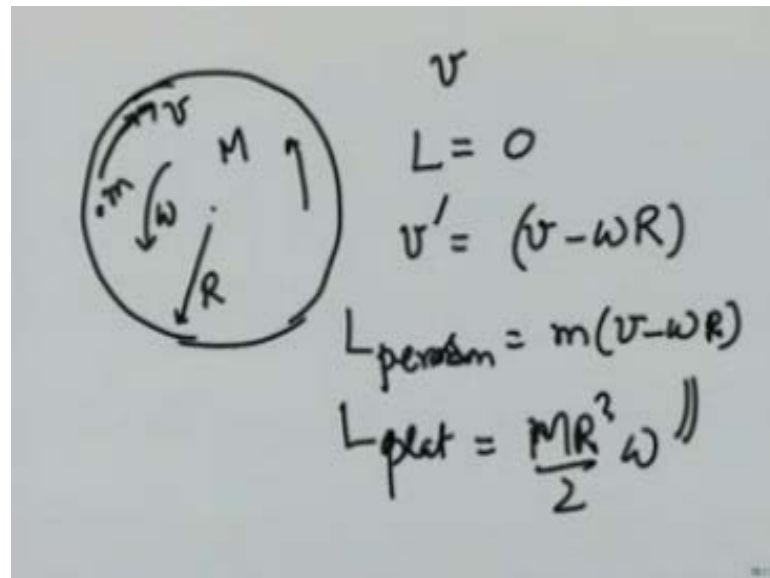 v
mv
M
L = 0
.m
ω
v' = (v-ωR)
R
L person = m(v-ωR)
L plat = MR²/2 ω